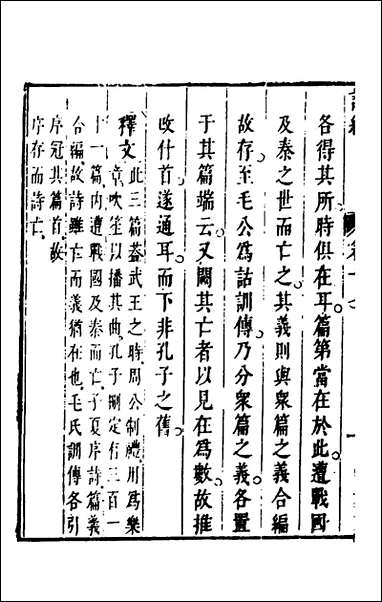 各得其所時俱在耳篇第當在於此遭戰國
及秦之世而亡之其義則與衆篇之義合編
故存至毛公爲詁訓傳乃分衆篇之義各置
于其篇端云又闕其亡者以見在爲數故推
改什首遂通耳而下非孔子之舊
釋文此三篇葢武王之時周公制禮用爲樂
章吹笙以播其曲孔子刪定在三百一
十一篇內遭戰國及秦而亡子夏序詩篇義
合編故詩雖亡而義猶在也毛氏訓傳各引
序冠其篇首故
序存而詩亡